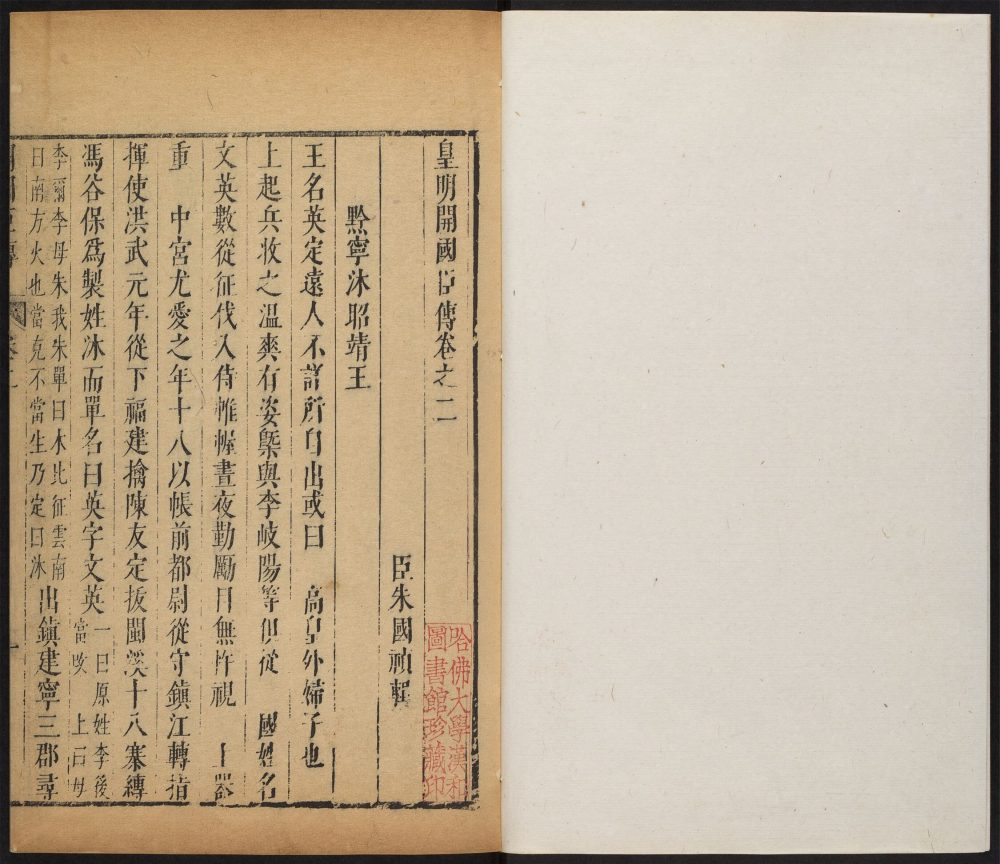 皇明開國臣傳卷之二
臣朱國禎輯
黔寧沐昭靖王
王名英定遠人不言所自出或曰 高皇外婦子也
上起兵收之溫爽有姿槩與李岐陽等俱從 國姓名
文英數從征伐入侍帷幄晝夜勤勵目無忤視 上器
重 中宮尤愛之年十八以帳前都尉從守鎮江轉指
揮使洪武元年從下福建擒陳友定拔閩溪十八寨縛
馮谷保爲製姓沐而單名曰英字文英
一曰原姓李後
當改 上曰母
李爾李母朱我朱單曰木比征雲南
曰南方火也當克不當生乃定曰沐
出鎮建寧三郡尋
哈佛大學漢和
圖書館珍藏印